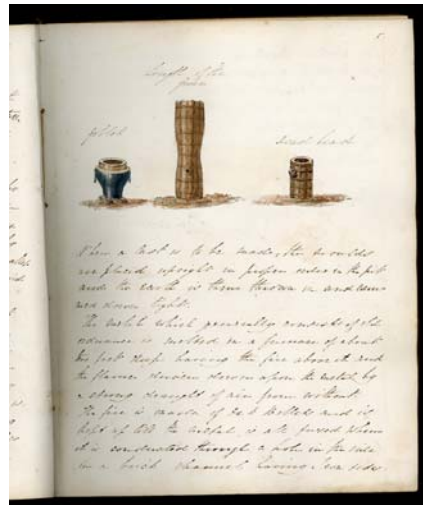 5
length of the
piece
dead head
When a cast is to be made, the moulds
are placed upright in proper order in the pit
and the earth is then thrown in and ram
med down tight.
The metal which generally consists of old
ordnance is melted in a furnace of about
two feet deep having the fire above it and
the flames driven down upon the metal by
a strong draught of air from without
The fire is made of and is
kept up till the metal is all fused when
it is conducted through a hole in the side
in a brick channel having iron sides